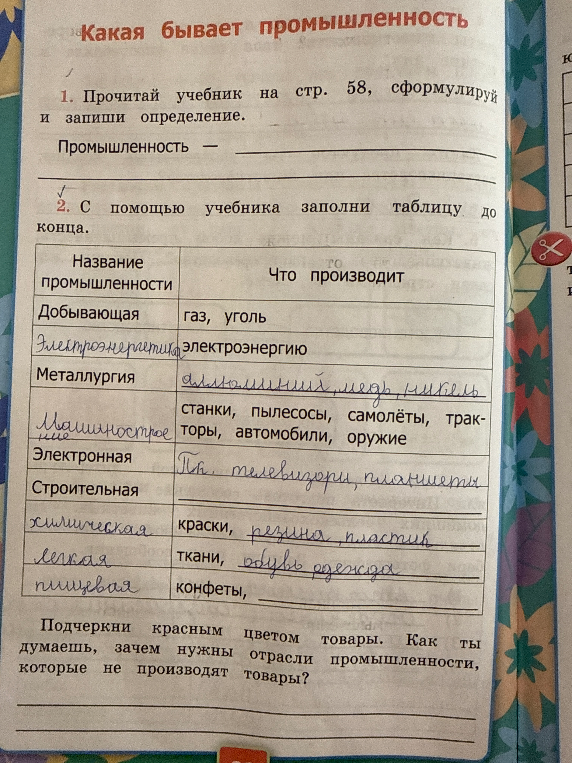 Какая бывает промышленность
1. Прочитай учебник на стр. 58, сформулируй
и запиши определение.
Промышленность —
2. С помощью учебника заполни таблицу до
конца.
Название
промышленности
Что производит
Добывающая
газ, уголь
Электроэнергетика
электроэнергию
Металлургия
аллюминий, медь, никель
Машинострое
ние
станки, пылесосы, самолёты, трак-
торы, автомобили, оружие
Электронная
Пк. телевизори, планшеты
Строительная
химическая
краски, резина, пластик
легкая
ткани, обувь одежда
пищевая
конфеты,
Подчеркни красным цветом товары. Как ты
думаешь, зачем нужны отрасли промышленности,
которые не производят товары?